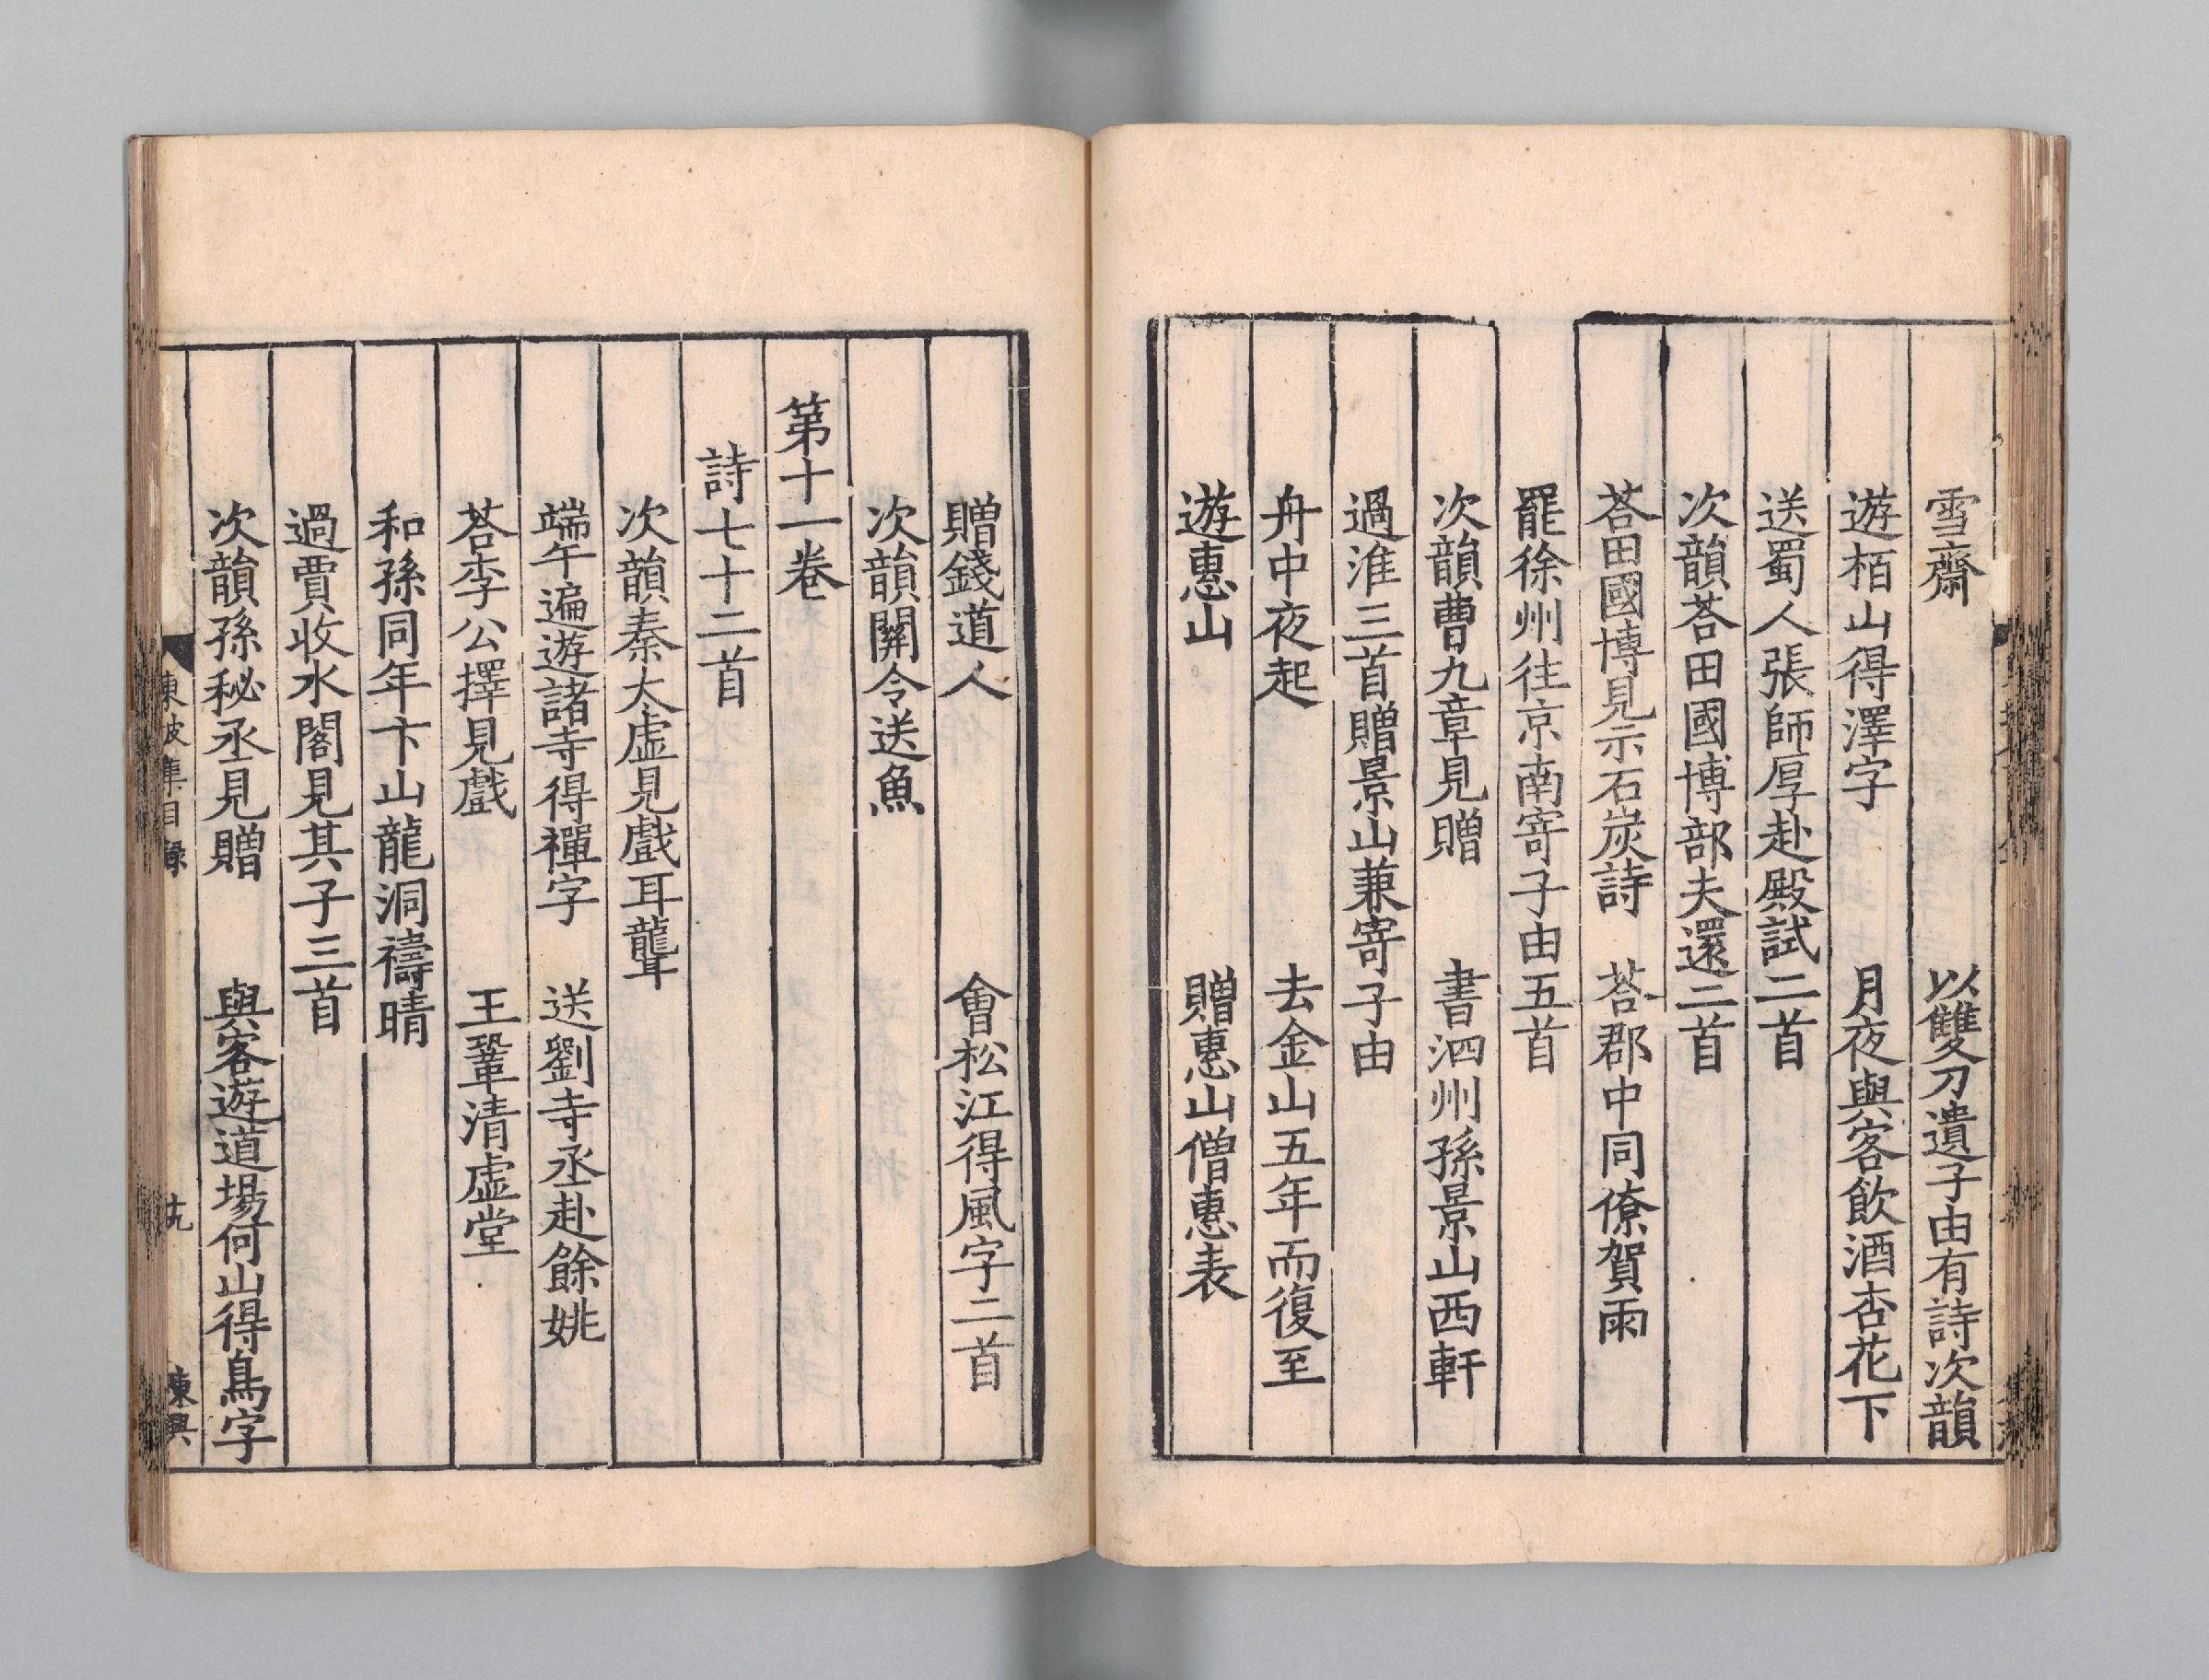 雪齋　以雙刀遺子由有詩次韻
遊栢山得澤字　月夜與客飲酒杏花下
送蜀人張師厚赴殿試二首
次韻荅田國博部夫還二首
荅田國博見示石炭詩　荅郡中同僚賀雨
罷徐州往京南寄子由五首
次韻曹九章見贈　書泗州孫景山西軒
過淮三首贈景山兼寄子由
舟中夜起　去金山五年而復至
遊惠山　贈惠山僧惠表
贈錢道人　會松江得風字二首
次韻關令送魚
第十一卷
詩七十二首
次韻秦太虛見戲耳聾
端午遍遊諸寺得禪字　送劉寺丞赴餘姚
荅李公擇見戲　王鞏清虛堂
和孫同年卞山龍洞禱晴
過賈收水閣見其子三首
次韻孫秘丞見贈　與客遊道場何山得鳥字
東坡集目録